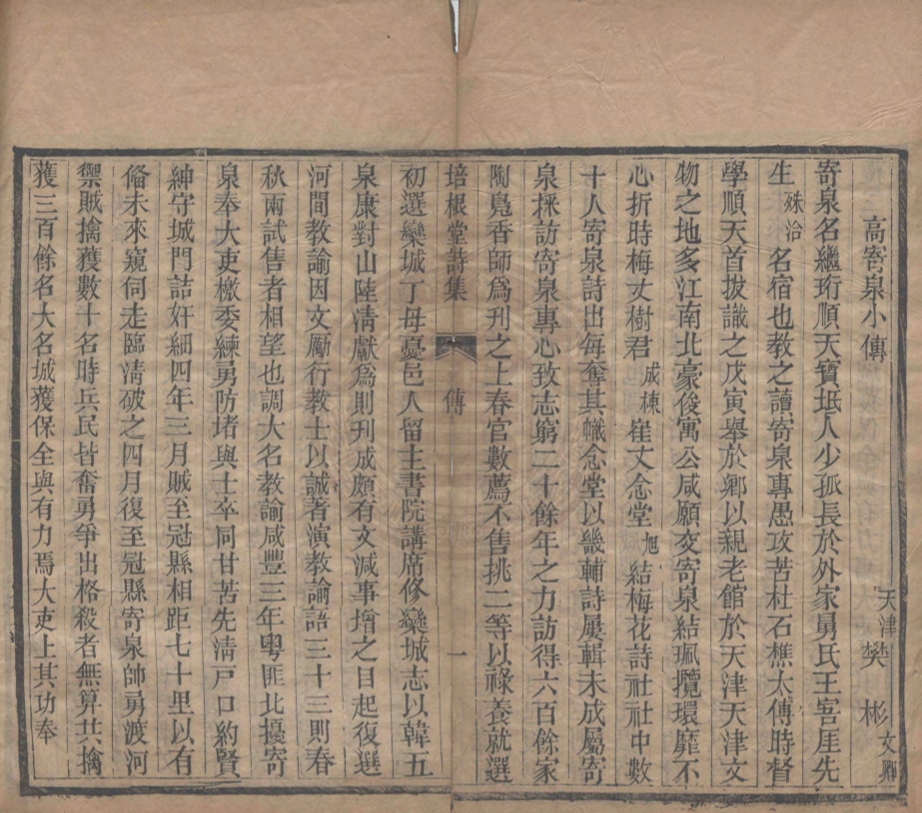 高寄泉小傳
天津樊彬文卿
寄泉名繼珩順天寶坻人少孤長於外家舅氏王客厓先
生殊洽名宿也教之讀寄泉專愚攻苦杜石樵太傅時督
學順天首拔識之戊寅舉於鄉以親老館於天津天津文
物之地多江南北豪俊寓公咸願交寄泉結珮攬環靡不
心折時梅丈樹君成棟崔丈念堂旭結梅花詩社社中數
十人寄泉詩出每奪其幟念堂以畿輔詩屢輯未成屬寄
泉採訪寄泉專心致志窮二十餘年之力訪得六百餘家
陶鳧香師爲刊之上春官數薦不售挑二等以祿養就選
培根堂詩集 傳 一
初選欒城丁母憂邑人留主書院講席修欒城志以韓五
泉康對山陸清獻爲則刊成頗有文減事增之目起復選
河間教諭因文勵行教士以誠著演教諭語三十三則春
秋兩試售者相望也調大名教諭咸豐三年粵匪北擾寄
泉奉大吏檄委練勇防堵與士卒同甘苦先清戸口約賢
紳守城門詰奸細四年三月賊至冠縣相距七十里以有
偹未來窺伺走臨清破之四月復至冠縣寄泉帥勇渡河
禦賊擒獲數十名時兵民皆奮勇爭出格殺者無算共擒
獲三百餘名大名城獲保全與有力焉大吏上其功奉